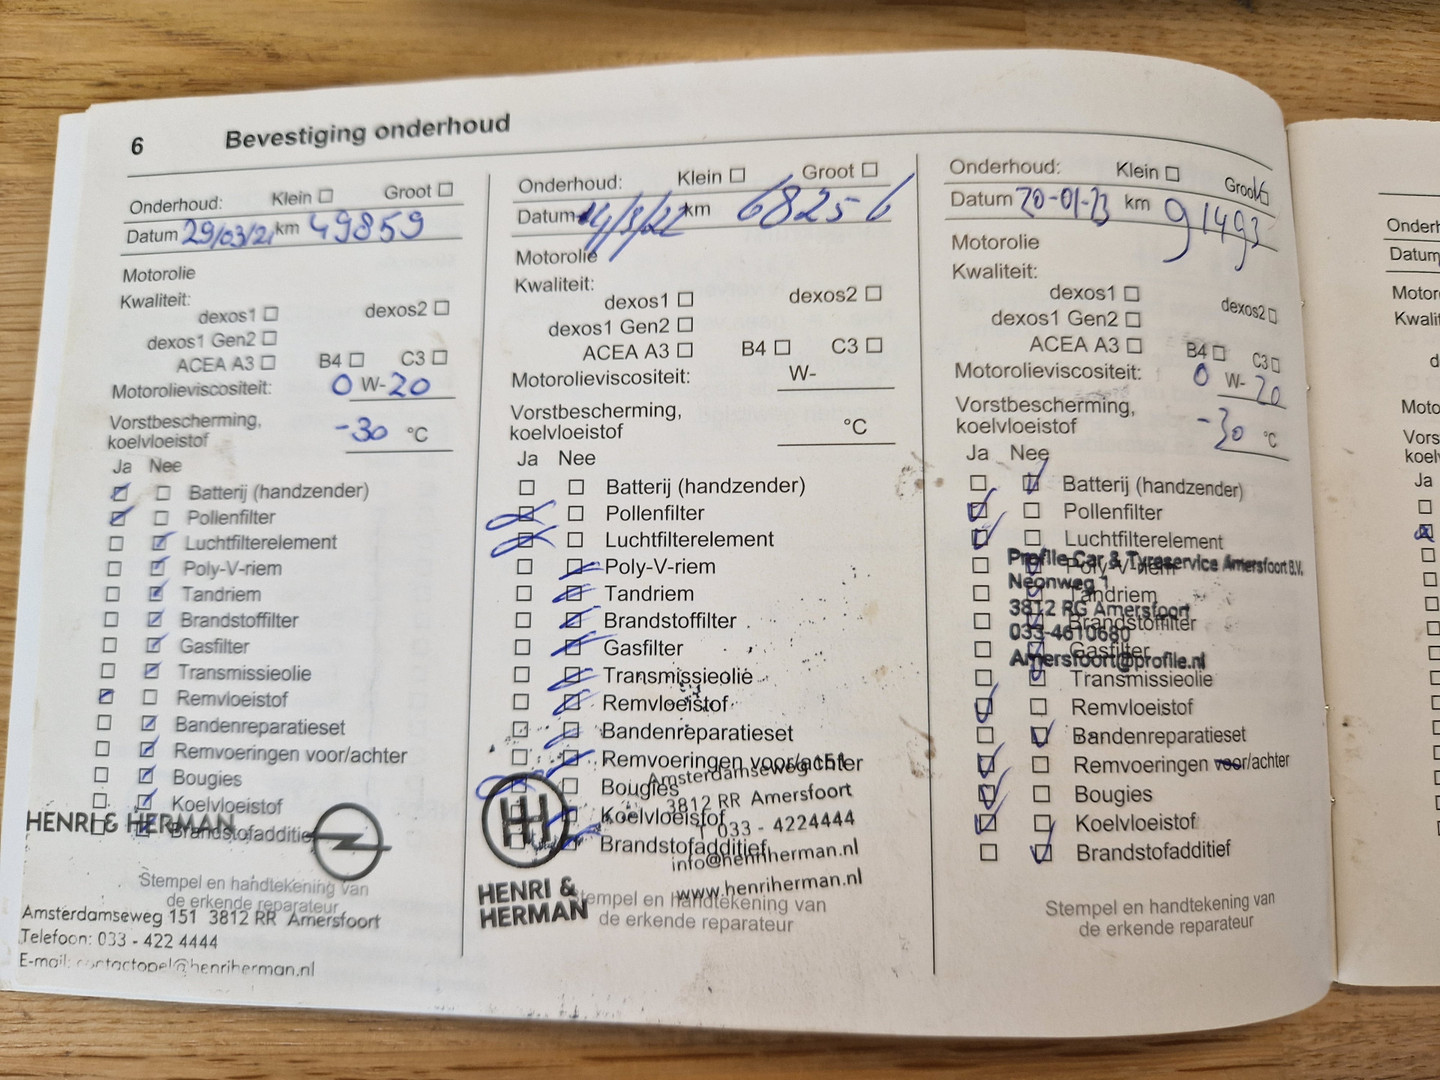 6 Bevestiging onderhoud
Onderhoud: Klein ☐ Groot ☐
Datum 29/03/21 km 49859
Motorolie
Kwaliteit:
dexos1 ☐ dexos2 ☐
dexos1 Gen2 ☐
ACEA A3 ☐ B4 ☐ C3 ☐
Motorolieviscositeit: 0 W-20
Vorstbescherming,
koelvloeistof -30 °C
Ja Nee
Batterij (handzender)
Pollenfilter
Luchtfilterelement
Poly-V-riem
Tandriem
Brandstoffilter
Gasfilter
Transmissieolie
Remvloeistof
Bandenreparatieset
Remvoeringen voor/achter
Bougies
Koelvloeistof
Brandstofadditief
HENRI & HERMAN
Stempel en handtekening van
de erkende reparateur
Amsterdamseweg 151 3812 RR Amersfoort
Telefoon: 033 - 422 4444
E-mail: contactopel@henriherman.nl
Onderhoud: Klein ☐ Groot ☐
Datum 14/3/22 km 68256
Motorolie
Kwaliteit:
dexos1 ☐ dexos2 ☐
dexos1 Gen2 ☐
ACEA A3 ☐ B4 ☐ C3 ☐
Motorolieviscositeit: W-
Vorstbescherming,
koelvloeistof °C
Ja Nee
Batterij (handzender)
Pollenfilter
Luchtfilterelement
Poly-V-riem
Tandriem
Brandstoffilter
Gasfilter
Transmissieolie
Remvloeistof
Bandenreparatieset
Remvoeringen voor/achter
Bougies
Koelvloeistof
Brandstofadditief
HH
HENRI &
HERMAN
Amsterdamseweg 151
3812 RR Amersfoort
T 033 - 4224444
info@henriherman.nl
www.henriherman.nl
Stempel en handtekening van
de erkende reparateur
Onderhoud: Klein ☐ Groot
Datum 20-01-23 km 91493
Motorolie
Kwaliteit:
dexos1 ☐ dexos2 ☐
dexos1 Gen2 ☐
ACEA A3 ☐ B4 ☐ C3 ☐
Motorolieviscositeit: 0 W-20
Vorstbescherming,
koelvloeistof -30 °C
Ja Nee
Batterij (handzender)
Pollenfilter
Luchtfilterelement
Poly-V-riem
Tandriem
Brandstoffilter
Gasfilter
Transmissieolie
Remvloeistof
Bandenreparatieset
Remvoeringen voor/achter
Bougies
Koelvloeistof
Brandstofadditief
Profile Car & Tyreservice Amersfoort B.V.
Neonweg 1
3812 RG Amersfoort
033-4610680
Amersfoort@profile.nl
Stempel en handtekening van
de erkende reparateur
Ja